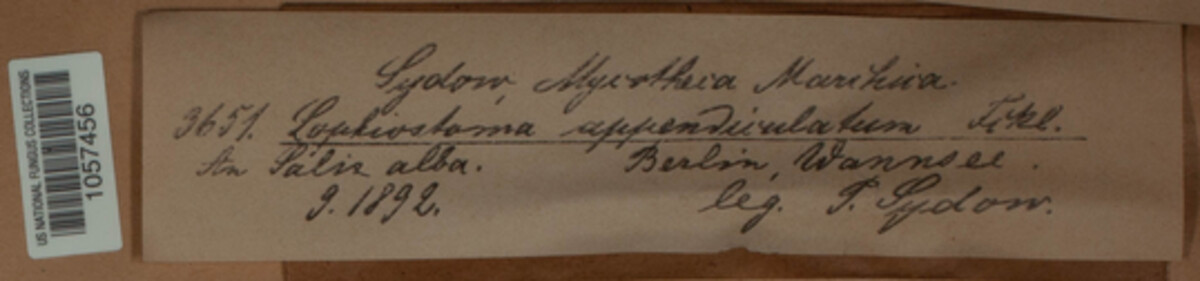 US NATIONAL FUNGUS COLLECTIONS
1057456
Sydow, Mycotheca Marchica.
3651. Lophiostoma appendiculatum Fckl.
An Salix alba. Berlin, Wannsee.
9. 1892. leg. P. Sydow.